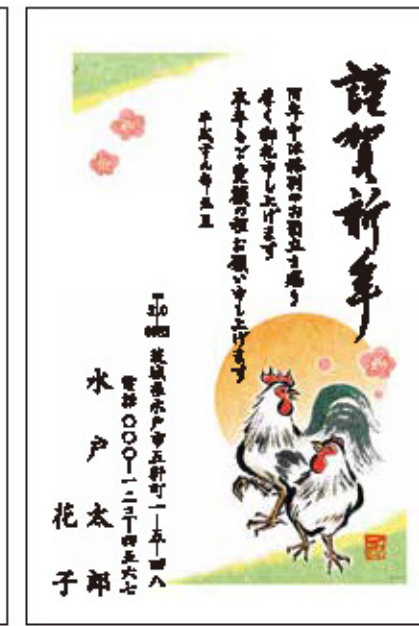 謹賀新年
旧年中は格別のお引立を賜り
厚く御礼申し上げます
本年もご愛顧の程お願い申し上げます
元旦
茨城県水戸市五軒町一ー五ー四八
電話〇〇〇ー一二三ー四五六七
水戸太郎
花子